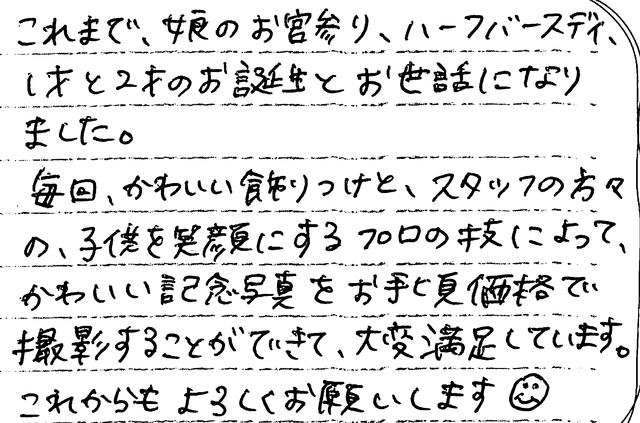 これまで、娘のお宮参り、ハーフバースデイ、
1才と2才のお誕生とお世話になり
ました。
毎回、かわいい飾りつけと、スタッフの方々
の、子供を笑顔にするプロの技によって、
かわいい記念写真をお手ごろ価格で
撮影することができて、大変満足しています。
これからもよろしくお願いします